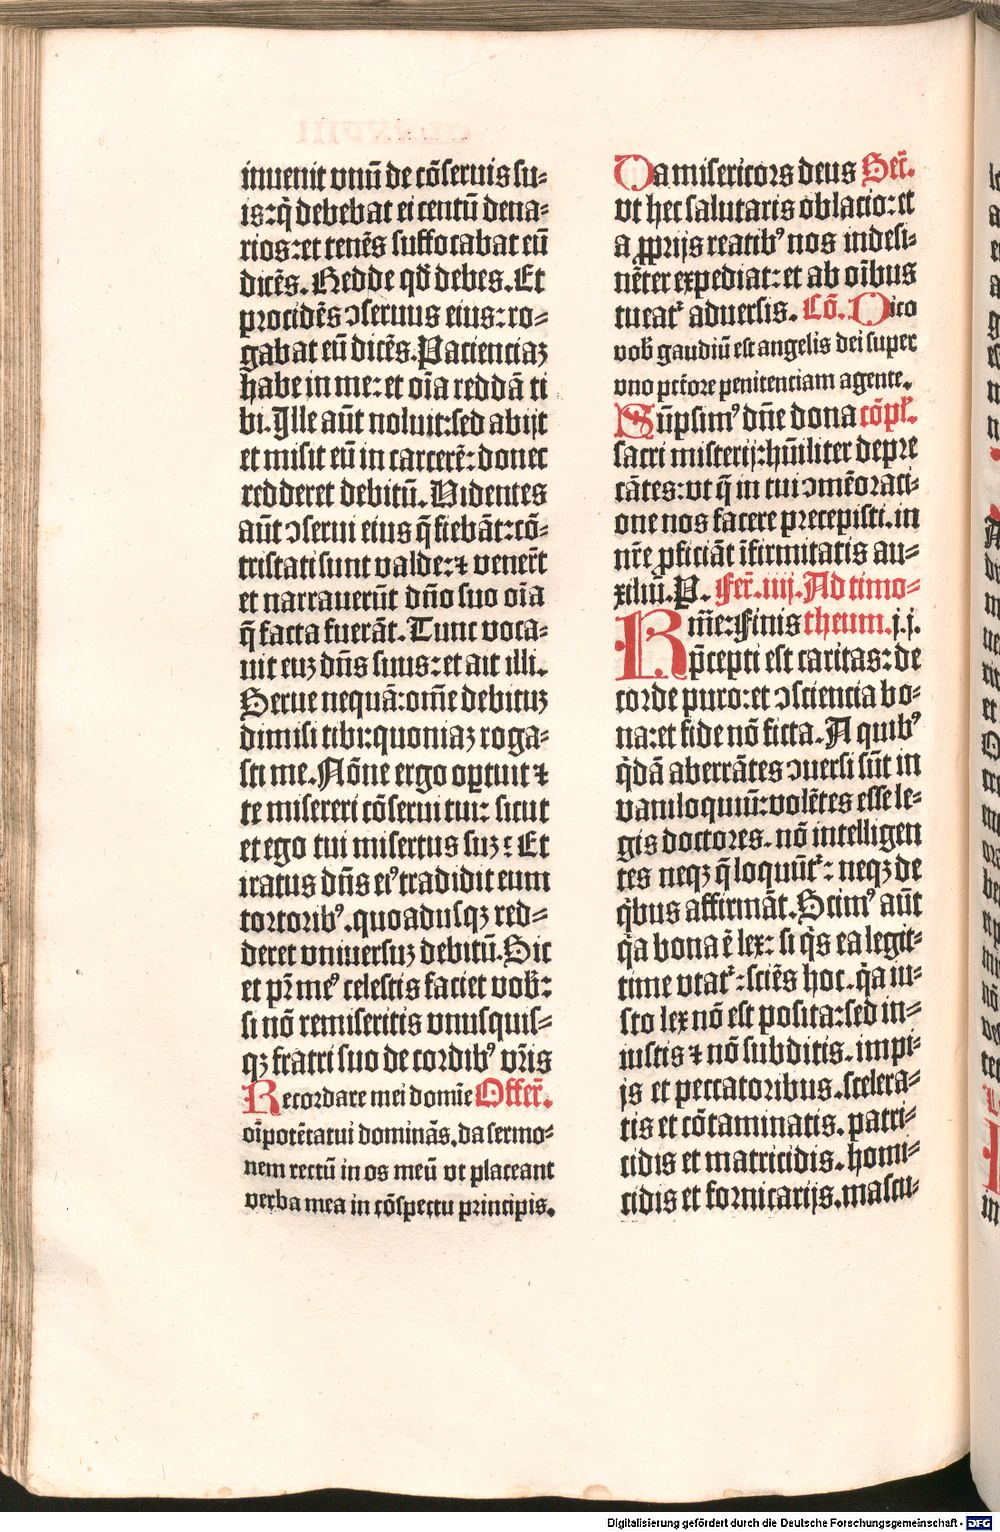 inuenit vnū de cōseruis su⸗
is:q̄ debebat ei centū dena⸗
rios:et tenēs suffocabat eū
dicēs. Redde qd̄ debes. Et
procidēs ꝯseruus eius: ro⸗
gabat eū dicēs. Pacienciaꝫ
habe in me: et oīa reddā ti
bi. Ille aūt noluit:sed abijt
et misit eū in carcerē: donec
redderet debitū. Uidentes
aūt ꝯserui eius q̄ fiebāt:cō⸗
tristati sunt valde:⁊ venerūt
et narrauerūt dn̄o suo oīa
q̄ facta fuerāt. Tunc voca⸗
uit euꝫ dn̄s suus: et ait illi.
Serue nequā:om̄e debituꝫ
dimisi tibi:quoniaꝫ roga⸗
sti me. Nōne ergo oꝑtuit ⁊
te misereri cōserui tui: sicut
et ego tui misertus suꝫ: Et
iratus dn̄s eiꝰ tradidit eum
tortoribꝰ. quoadusqꝫ red⸗
deret vniuersuꝫ debitū. Sic
et pr̄ meꝰ celestis faciet vob̄:
si nō remiseritis vnusquis⸗
qꝫ fratri suo de cordibꝰ vr̄is
Recordare mei domīe Offer̄.
oīpotētatui dominās, da sermo⸗
nem rectū in os meū vt placeant
verba mea in cōspectu principis.
Da misericors deus Secr̄.
vt hec salutaris oblacio: et
a ꝓprijs reatibꝰ nos indesi⸗
nēter expediat: et ab oībus
tueat᷑ aduersis. Cō. Dico
vob̄ gaudiū est angelis dei super
vno pctōre penitenciam agente.
Sūpsimꝰ dn̄e dona cōpl̄.
sacri misterij:hūiliter depre
cātes: vt q̄ in tui ꝯmēoraci⸗
one nos facere precepisti. in
nr̄e ꝓficiāt īfirmitatis au⸗
xiliū. P. Fer̄. iiij. Ad timo⸗
Rm̄e: Finis theum. j. j.
p̄cepti est caritas: de
corde puro: et ꝯsciencia bo⸗
na: et fide nō ficta. A quibꝰ
q̄dā aberrātes ꝯuersi sūt in
vaniloquiū: volētes esse le⸗
gis doctores. nō intelligen
tes neqꝫ q̄ loquūt᷑: neqꝫ de
q̄bus affirmāt. Scimꝰ aūt
q̄a bona ē lex: si q̄s ea legit⸗
time vtat᷑: sciēs hoc. q̄a iu⸗
sto lex nō est posita: sed in⸗
iustis ⁊ nō subditis. impi⸗
js et peccatoribus. scelera⸗
tis et cōtaminatis. patri⸗
cidis et matricidis. homi⸗
cidis et fornicarijs. mascu⸗
Digitalisierung gefördert durch die Deutsche Forschungsgemeinschaft - DFG